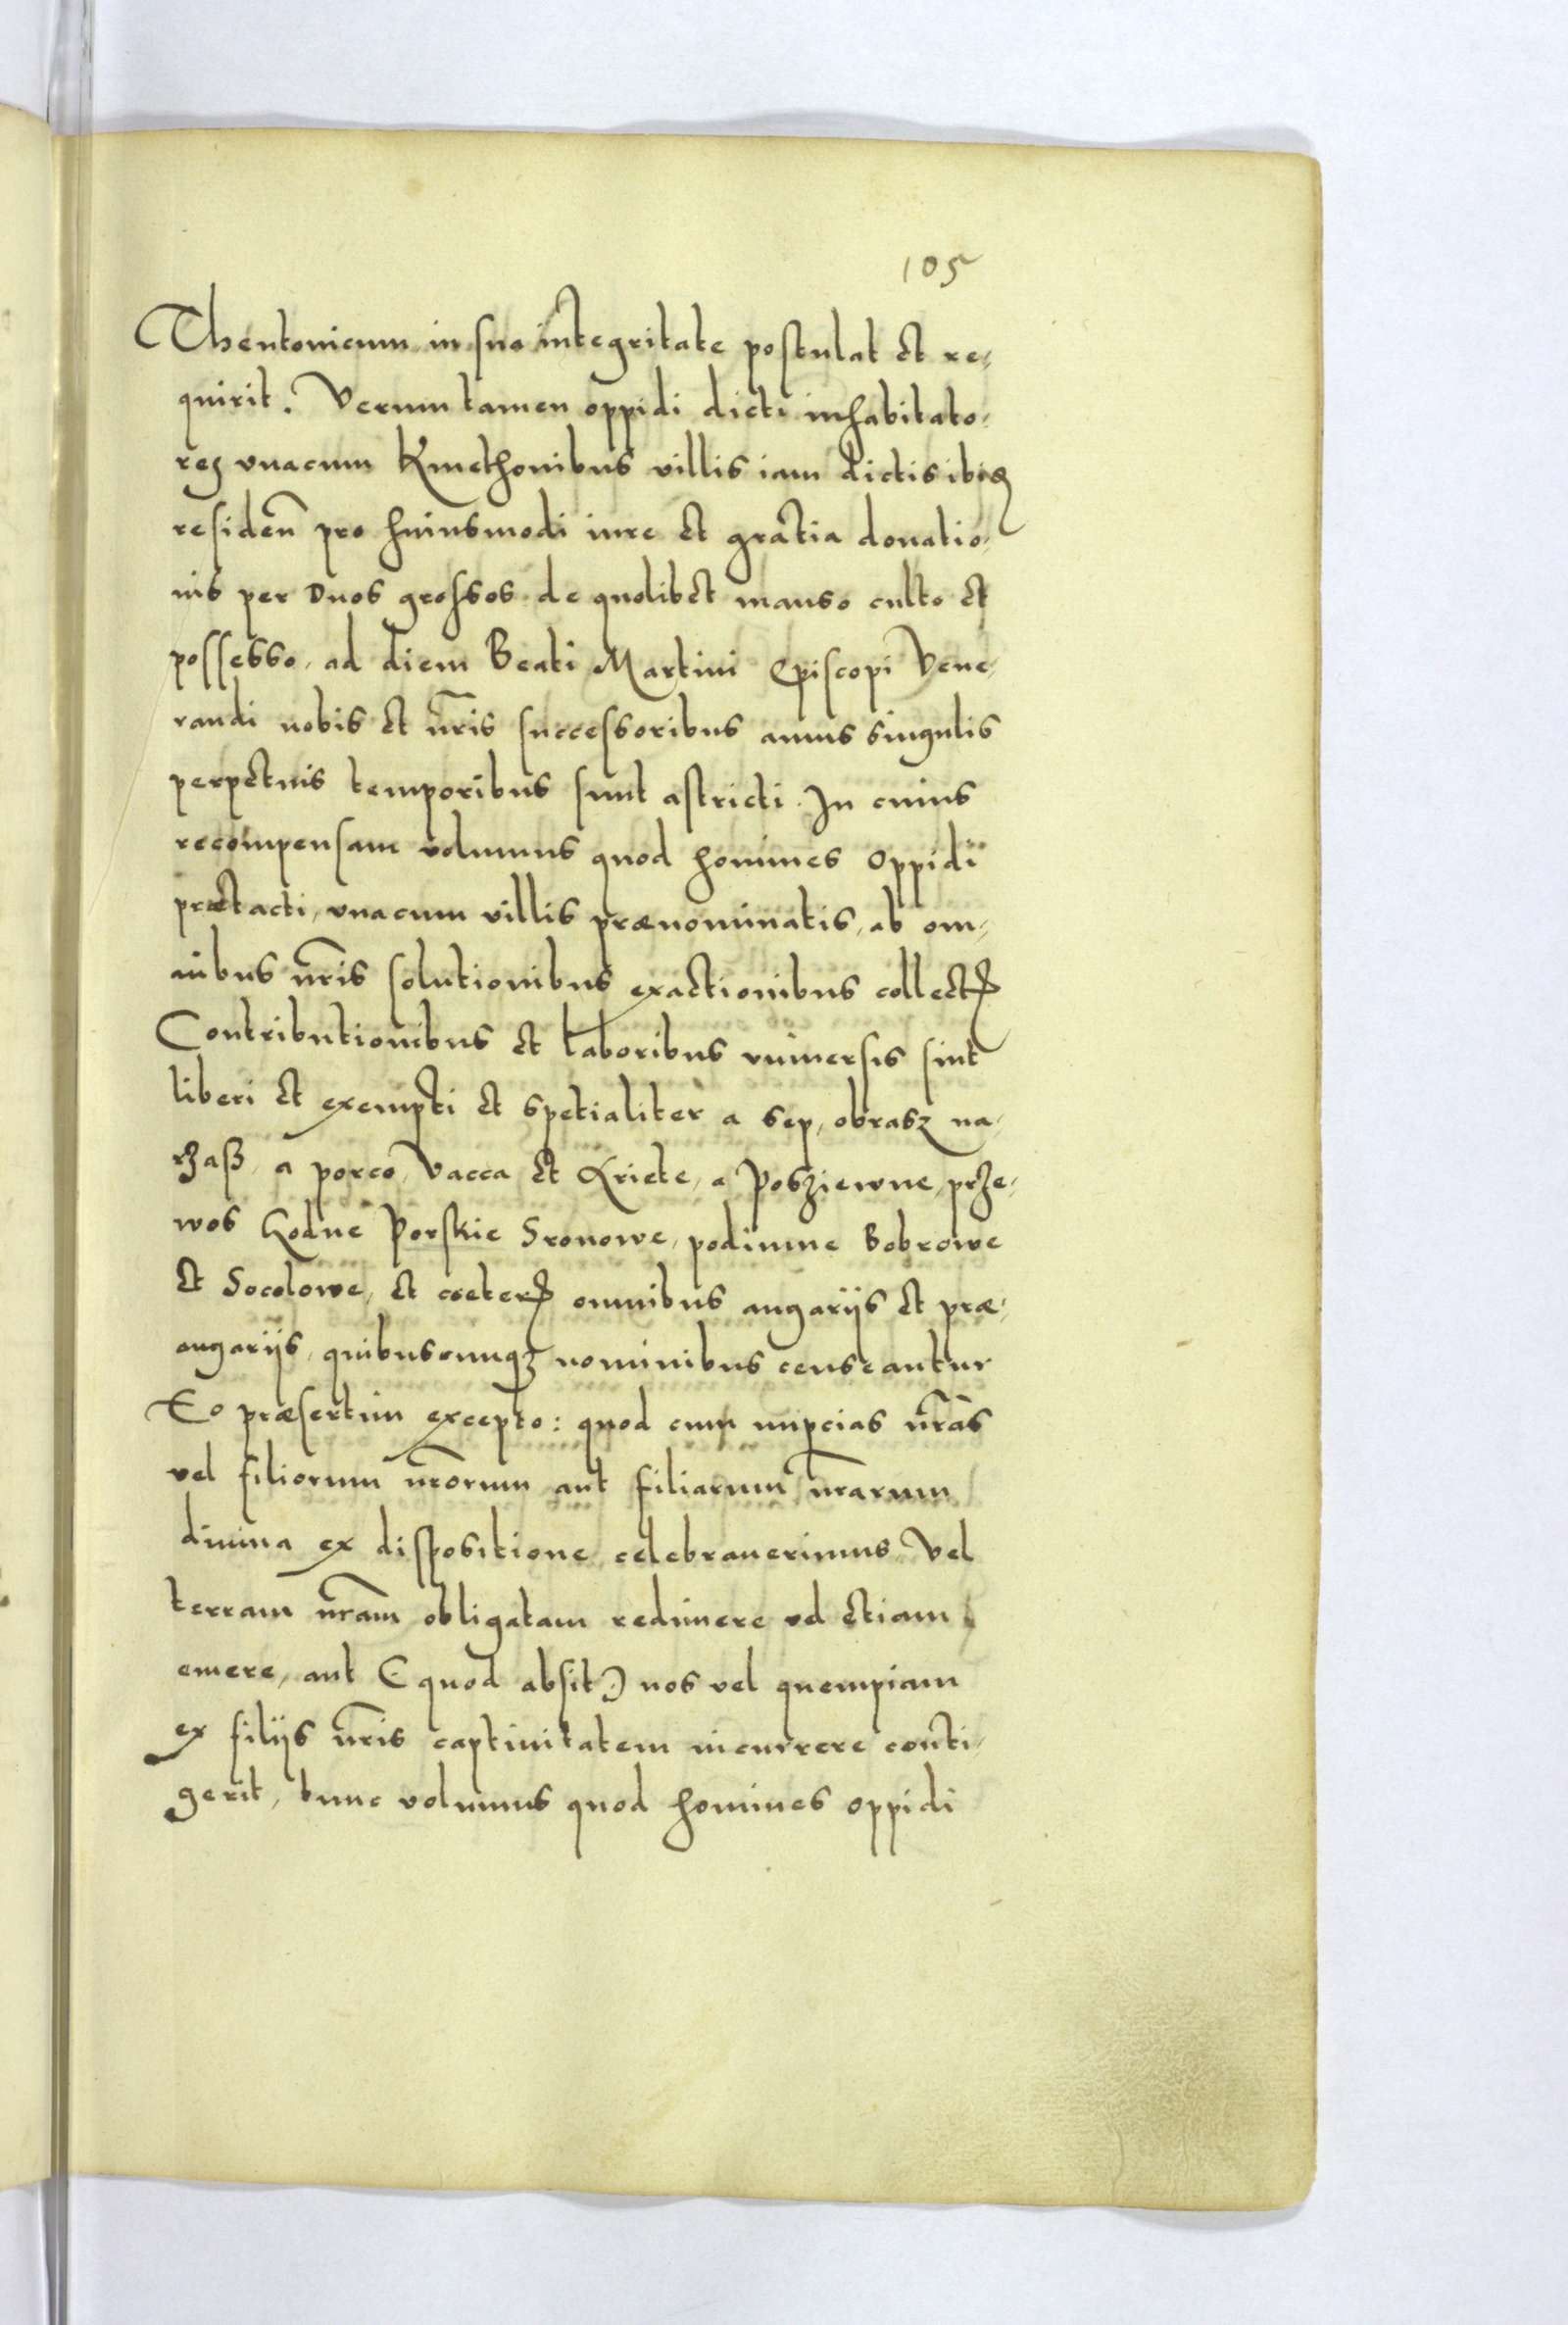 105
Theutonicum in sua integritate postulat et re-
quirit. Verum tamen oppidi dicti inhabitato-
res vnacum Kmethonibus villis iam dictis ibidem
residen̄ pro huiusmodi iure et gratia donatio-
nis per Duos grossos de quolibet manso culto et
possesso, ad diem Beati Martini Episcopi Vene-
randi nobis et nr̄is successoribus annis singulis
perpetuis temporibus sunt astricti. In cuius
recompensam volumus quod homines Oppidi
prætacti, vnacum villis prænominatis, ab om-
nibus nr̄is solutionibus exactionibus collectis
Contributionibus et laboribus vniuersis sint
liberi et exempti et spetialiter a sep, obrasz na-
rzaß, a porco, Vacca et Ariete, a Posziewne, prze-
wos Hodne Porskie Sronowe, podimne Bobrowe
et Socolowe, et cæteris omnibus angarijs et præ-
angarijs, quibuscunqȝ nominibus censeantur
Eo præsertim excepto: quod cum nupcias nr̄as
vel filiorum nr̄orum aut filiarum nr̄arum
diuina ex dispositione celebrauerimus, Vel
terram nr̄am obligatam redimere vel etiam
emere, aut (quod absit) nos vel quempiam
ex filijs nr̄is captiuitatem incurrere conti-
gerit, tunc volumus quod homines oppidi